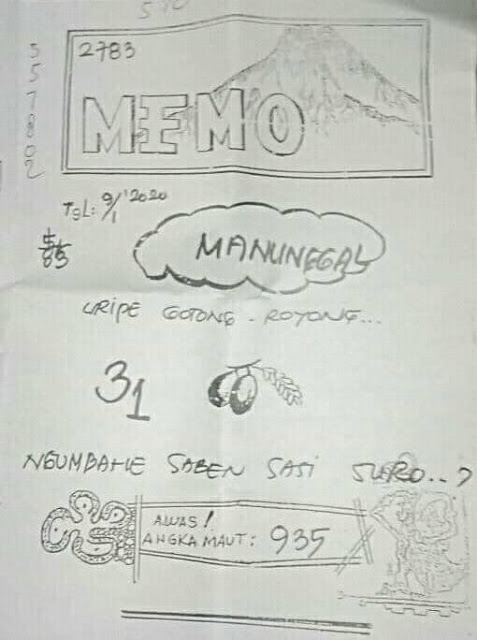 2783
MEMO
5
5
7
8
0
2
TGL: 9/1 '2020
MANUNEGAL
URIPE GOTONG - ROYONG...
31
NGUMBAHE SABEN SASI SURO..?
AWAS!
ANGKA MAUT: 935